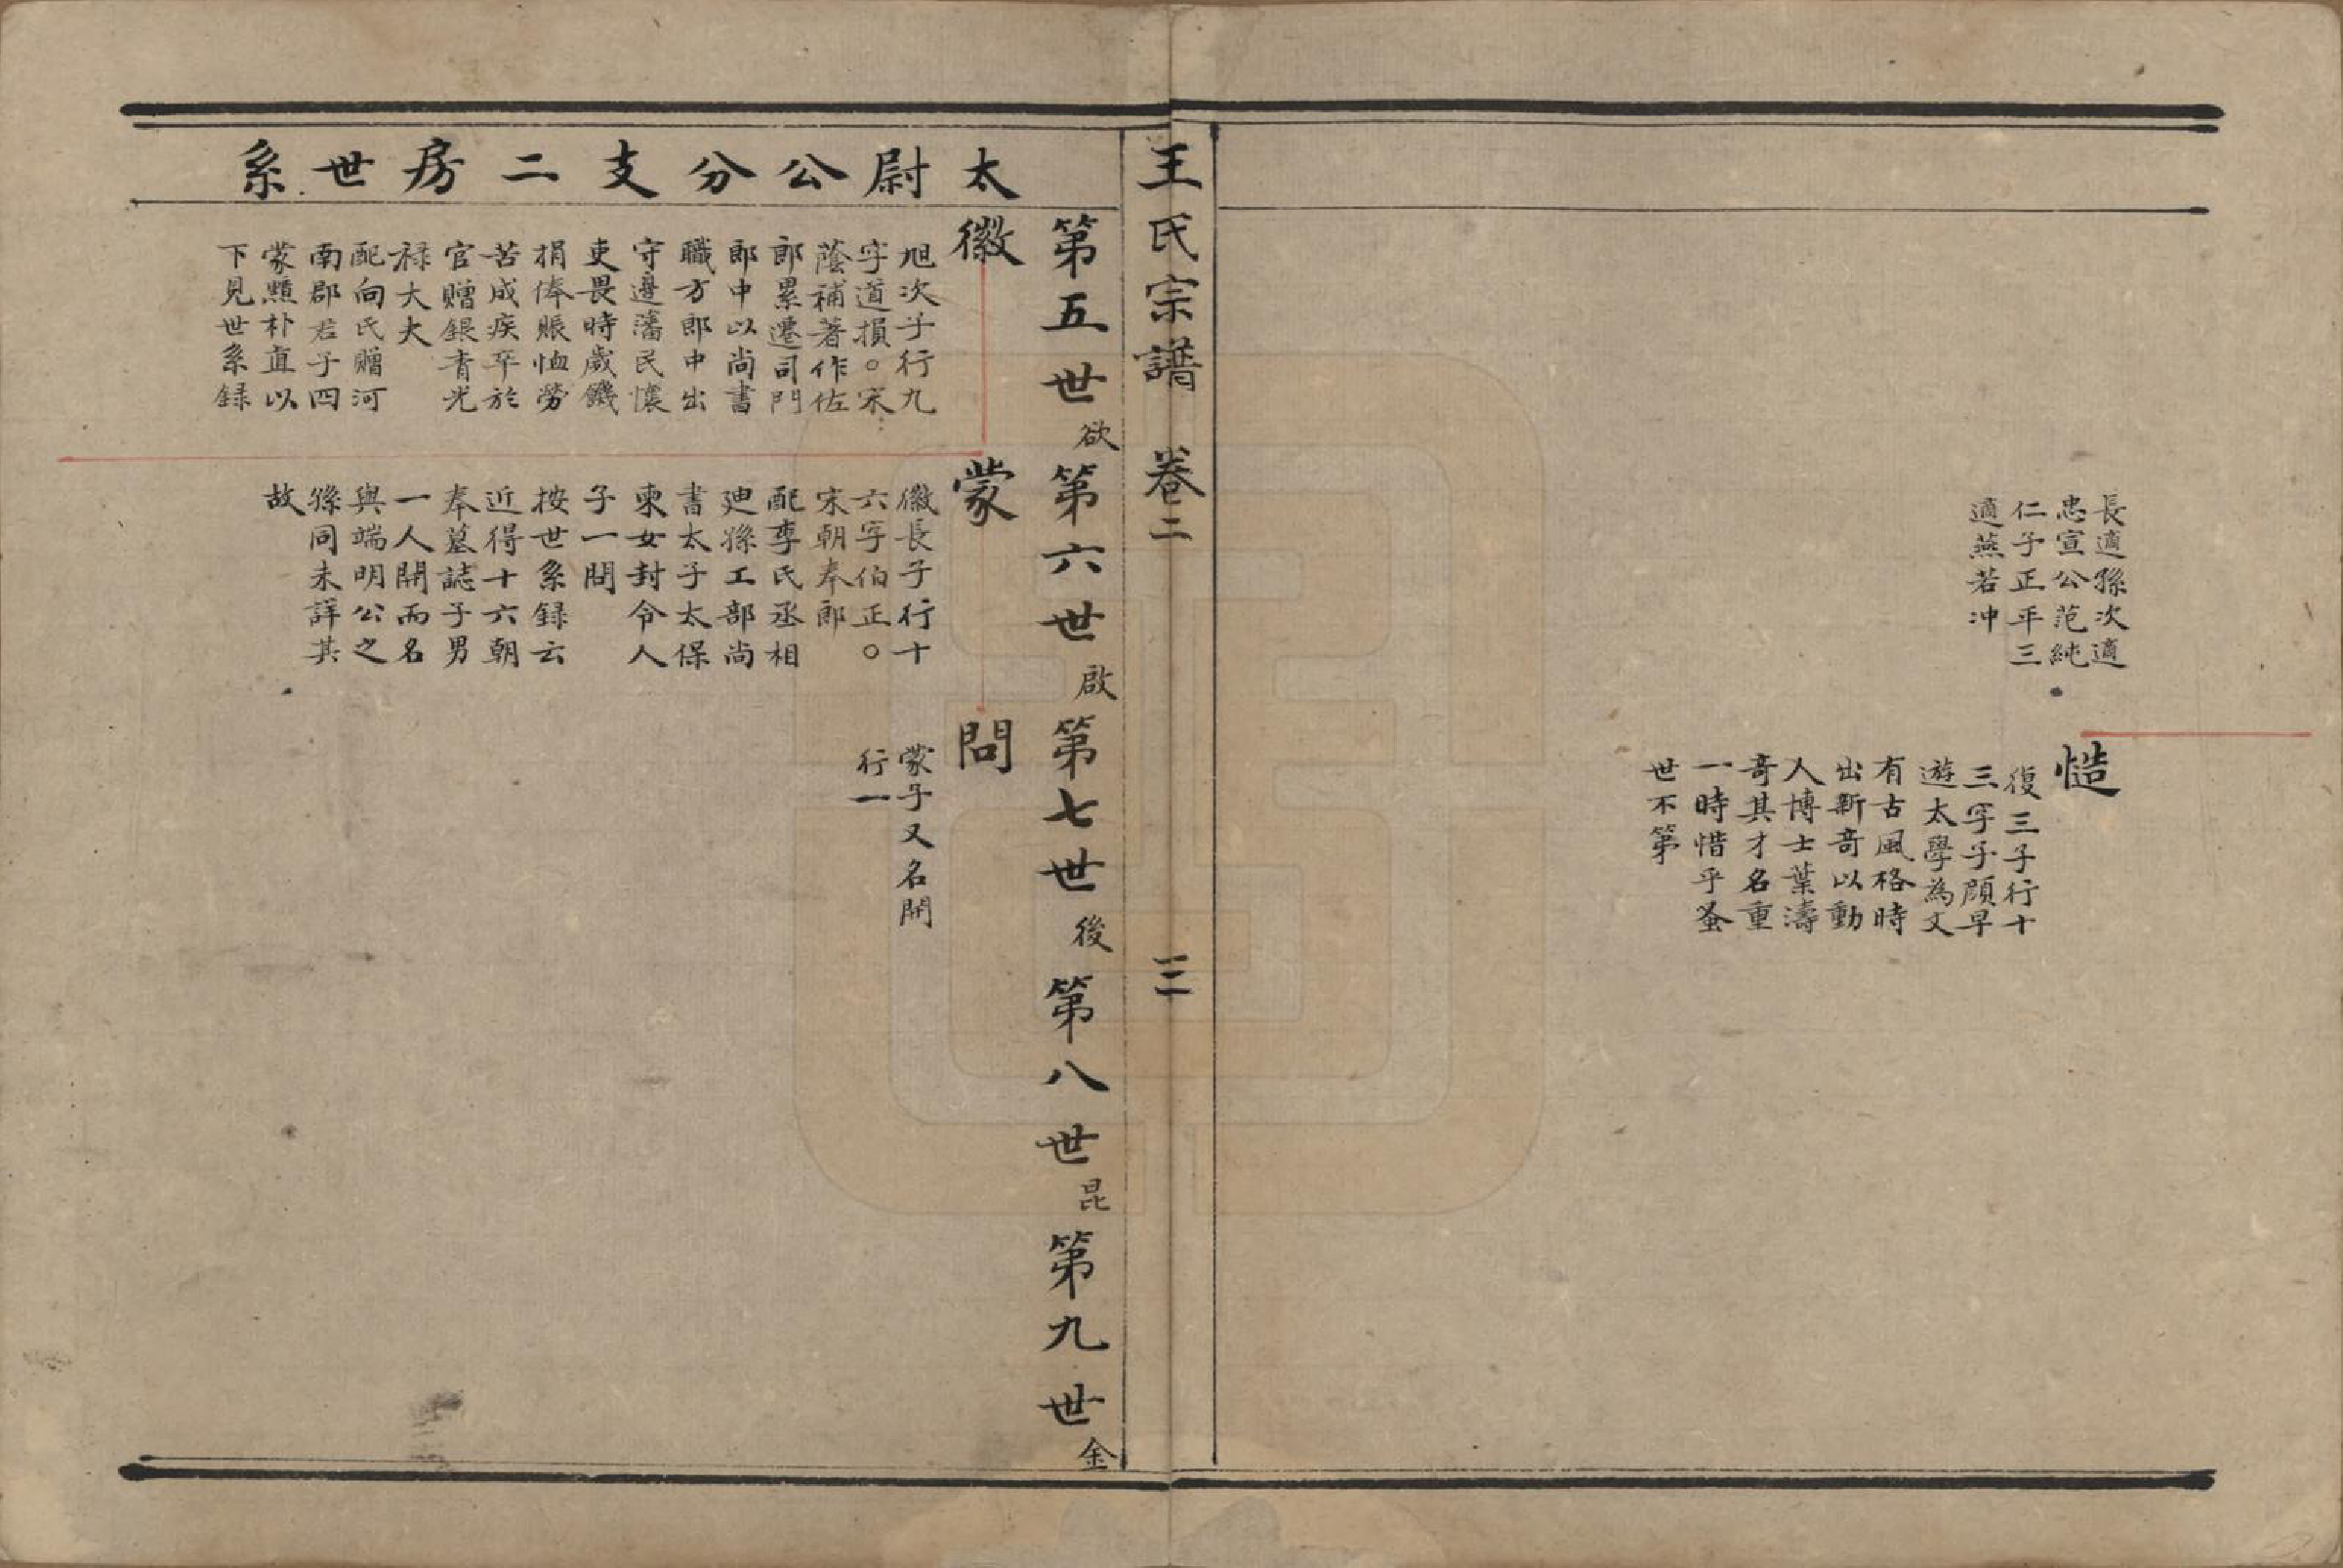 長適孫次適
忠宣公范純
仁子正平三
適燕若冲
慥
復三子行十
三字子頎早
遊太學為文
有古風格時
出新奇以動
人博士葉濤
奇其才名重
一時惜乎蚤
世不第
王氏宗譜 卷二 三
太尉公分支二房世系
第五世欲第六世啟第七世後第八世昆第九世金
徽
旭次子行九
字道損○宋
蔭補著作佐
郎累遷司門
郎中以尚書
職方郎中出
守邊藩民懷
吏畏時歲饑
捐俸賑恤勞
苦成疾卒於
官贈銀青光
祿大夫
配向氏贈河
南郡君子四
蒙顯朴直以
下見世系録
蒙
徽長子行十
六字伯正○
宋朝奉郎
配李氏丞相
廸孫工部尚
書太子太保
柬女封令人
子一問
按世系録云
近得十六朝
奉墓誌子男
一人開而名
與端明公之
孫同未詳其
故
問
蒙子又名開
行一